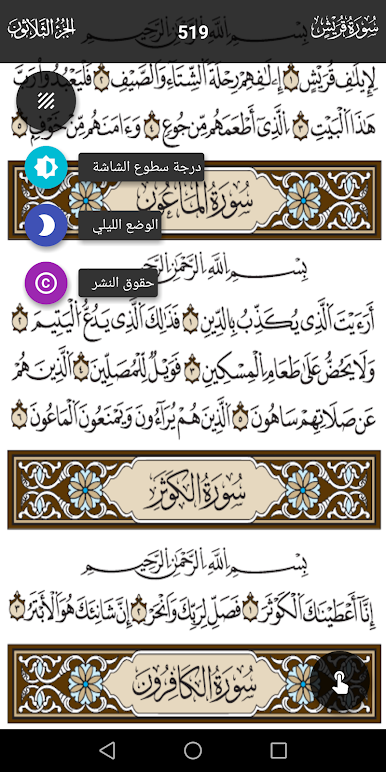 سورة قريش
519
الجزء الثلاثون
بِسْمِ اللَّهِ الرَّحْمَٰنِ الرَّحِيمِ
لِإِيلَٰفِ قُرَيْشٍ ١ إِۦلَٰفِهِمْ رِحْلَةَ الشِّتَآءِ وَالصَّيْفِ ٢ فَلْيَعْبُدُوا رَبَّ
هَٰذَا الْبَيْتِ ٣ الَّذِىٓ أَطْعَمَهُم مِّن جُوعٍ ٤ وَءَامَنَهُم مِّنْ خَوْفٍ ٥
درجة سطوع الشاشة
سُورَةُ الْمَاعُونِ
الوضع الليلي
بِسْمِ اللَّهِ الرَّحْمَٰنِ الرَّحِيمِ
حقوق النشر
أَرَءَيْتَ الَّذِى يُكَذِّبُ بِالدِّينِ ١ فَذَٰلِكَ الَّذِى يَدُعُّ الْيَتِيمَ ٢
وَلَا يَحُضُّ عَلَىٰ طَعَامِ الْمِسْكِينِ ٣ فَوَيْلٌ لِّلْمُصَلِّينَ ٤ الَّذِينَ هُمْ
عَن صَلَاتِهِمْ سَاهُونَ ٥ الَّذِينَ هُمْ يُرَآءُونَ وَيَمْنَعُونَ الْمَاعُونَ ٦
سُورَةُ الْكَوْثَرِ
بِسْمِ اللَّهِ الرَّحْمَٰنِ الرَّحِيمِ
إِنَّآ أَعْطَيْنَٰكَ الْكَوْثَرَ ١ فَصَلِّ لِرَبِّكَ وَانْحَرْ ٢ إِنَّ شَانِئَكَ هُوَ الْأَبْتَرُ ٣
سُورَةُ الْكَافِرُونَ